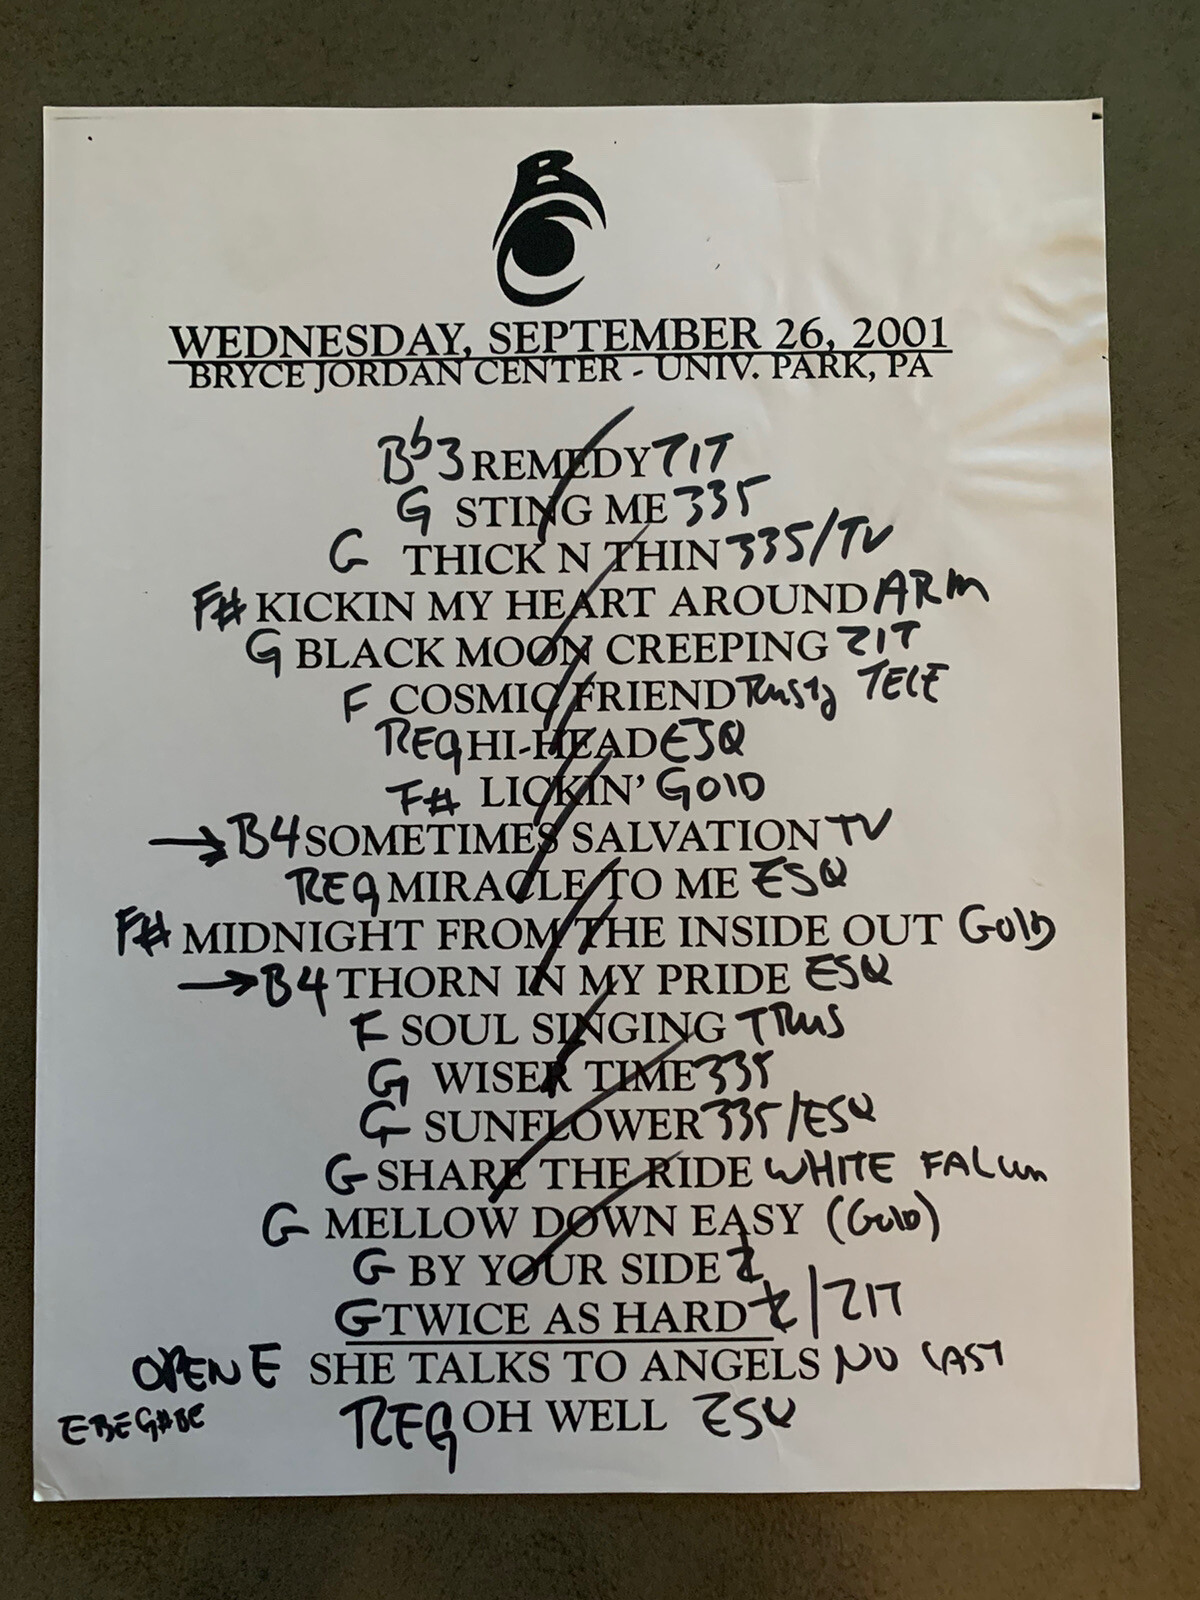 BC
WEDNESDAY, SEPTEMBER 26, 2001
BRYCE JORDAN CENTER - UNIV. PARK, PA
Bb3 REMEDY ZIT
G STING ME 335
G THICK N THIN 335/TV
F# KICKIN MY HEART AROUND ARM
G BLACK MOON CREEPING ZIT
F COSMIC FRIEND Rusty TELE
REG HI-HEAD ESQ
F# LICKIN' GOLD
→ B4 SOMETIMES SALVATION TV
REG MIRACLE TO ME ESQ
F# MIDNIGHT FROM THE INSIDE OUT GOLD
→ B4 THORN IN MY PRIDE ESQ
F SOUL SINGING
G WISER TIME 335
G SUNFLOWER 335/ESQ
G SHARE THE RIDE WHITE FALCON
G MELLOW DOWN EASY (GOLD)
G BY YOUR SIDE Z
G TWICE AS HARD Z/ZIT
OPEN E SHE TALKS TO ANGELS NO CAST
EBEG#BE REG OH WELL ESQ